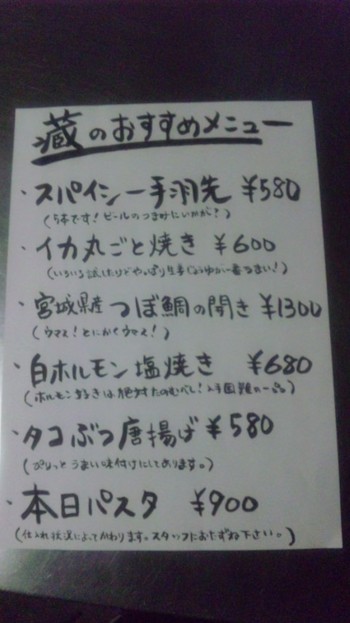 蔵のおすすめメニュー
・スパイシー手羽先 ¥580
(5本です!ビールのつまみにいかが?)
・イカ丸ごと焼き ¥600
(いろいろ試したけどやっぱり生姜じょうゆが一番うまい!)
・宮城県産つぼ鯛の開き ¥1300
(ウマイ!とにかくウマイ!)
・白ホルモン塩焼き ¥680
(ホルモン好きは絶対たのむべし!入手困難の一品)
・タコぶつ唐揚げ ¥580
(ぴりっとうまい味付けにしてあります。)
・本日パスタ ¥900
(仕入れ状況によってかわります。スタッフにおたずね下さい。)